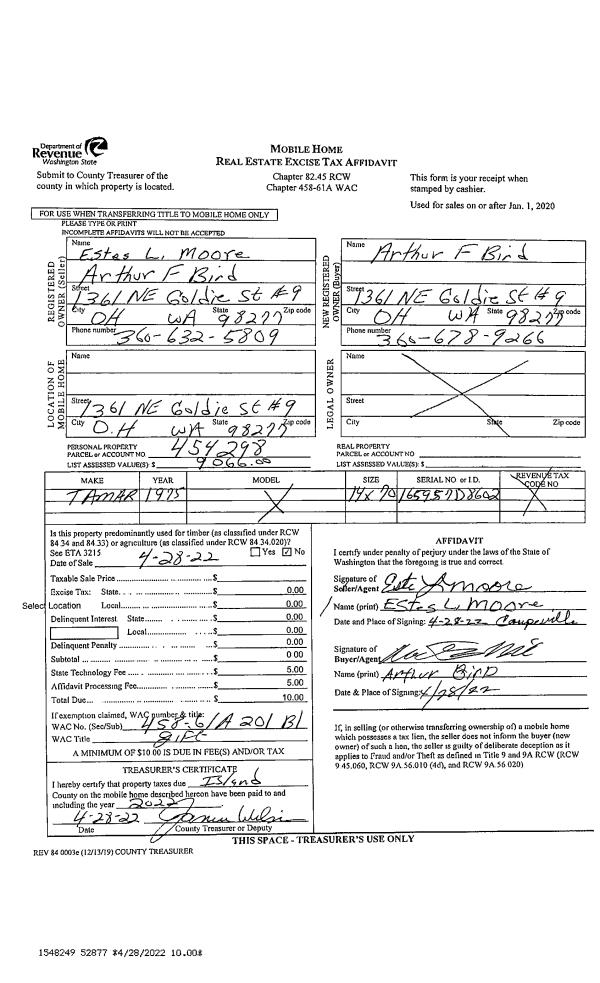 Department of
Revenue
Washington State
MOBILE HOME
REAL ESTATE EXCISE TAX AFFIDAVIT
Submit to County Treasurer of the
county in which property is located.
Chapter 82.45 RCW
Chapter 458-61A WAC
This form is your receipt when
stamped by cashier.
Used for sales on or after Jan. 1, 2020
FOR USE WHEN TRANSFERRING TITLE TO MOBILE HOME ONLY
PLEASE TYPE OR PRINT
INCOMPLETE AFFIDAVITS WILL NOT BE ACCEPTED
REGISTERED OWNER (Seller)
Name Estes L. Moore
Arthur F Bird
Street 1361 NE Goldie St #9
City OH State WA Zip code 98277
Phone number 360-632-5809
NEW REGISTERED OWNER (Buyer)
Name Arthur F Bird
Street 1361 NE Goldie St #9
City OH State WA Zip code 98277
Phone number 360-678-9266
LOCATION OF MOBILE HOME
Name
Street 1361 NE Goldie St #9
City O.H State WA Zip code 98277
LEGAL OWNER
Name
Street
City State Zip code
PERSONAL PROPERTY
PARCEL or ACCOUNT NO. 454298
LIST ASSESSED VALUE(S): $ 9066.00
REAL PROPERTY
PARCEL or ACCOUNT NO.
LIST ASSESSED VALUE(S): $
MAKE YEAR MODEL SIZE SERIAL NO or I.D. REVENUE TAX CODE NO
TAMAR 1975 X 14x70 165957D8602
Is this property predominantly used for timber (as classified under RCW
84 34 and 84.33) or agriculture (as classified under RCW 84 34.020)?
See ETA 3215 Yes ☑ No
Date of Sale 4-28-22
Taxable Sale Price $
Excise Tax: State $ 0.00
Select Location Local $ 0.00
Delinquent Interest State $ 0.00
Local $ 0.00
Delinquent Penalty $ 0.00
Subtotal $ 0 00
State Technology Fee $ 5.00
Affidavit Processing Fee $ 5.00
Total Due $ 10.00
If exemption claimed, WAC number & title:
WAC No. (Sec/Sub) 458-61A 201 B1
WAC Title gift
A MINIMUM OF $10 00 IS DUE IN FEE(S) AND/OR TAX
TREASURER'S CERTIFICATE
I hereby certify that property taxes due Island
County on the mobile home described hereon have been paid to and
including the year 2022
4-28-22
Date County Treasurer or Deputy
AFFIDAVIT
I certify under penalty of perjury under the laws of the State of
Washington that the foregoing is true and correct.
Signature of
Seller/Agent Estes L Moore
Name (print) EStes L. Moore
Date and Place of Signing: 4-28-22 Coupeville
Signature of
Buyer/Agent
Name (print) Arthur Bird
Date & Place of Signing: 4/28/22
If, in selling (or otherwise transferring ownership of) a mobile home
which possesses a tax lien, the seller does not inform the buyer (new
owner) of such a lien, the seller is guilty of deliberate deception as it
applies to Fraud and/or Theft as defined in Title 9 and 9A RCW (RCW
9 45.060, RCW 9A 56.010 (4d), and RCW 9A 56 020)
THIS SPACE - TREASURER'S USE ONLY
REV 84 0003e (12/13/19) COUNTY TREASURER
1548249 52877 *4/28/2022 10.00*